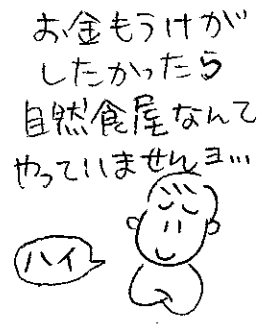 お金もうけが
したかったら
自然食屋なんて
やっていませんヨ…
ハイ